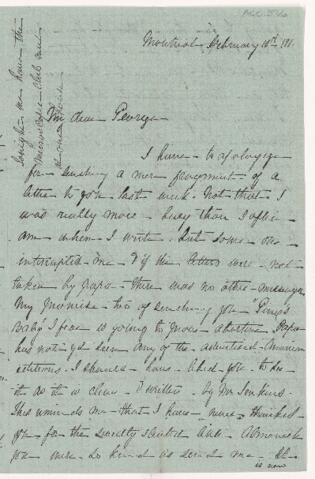 Montreal February 18th 181
My dear George
I have to apologize
for sending a mere fragment of a
letter to you last week. Not that I
was really more busy than I often
am when I write. but some one
interrupted me & if the letters were not
taken by papa there was no other
My promise too of sending you
Baby I fear is going to prove abortive. Papa
has not yet seen any of the advertised American
editions. I should have liked you to see
it as it is clever & written by Mr Jenkins.
This reminds me that I have never thanked
you for the Almanack
you were so kind as send me. It
is now
tonight we have the
Microscopic Club and